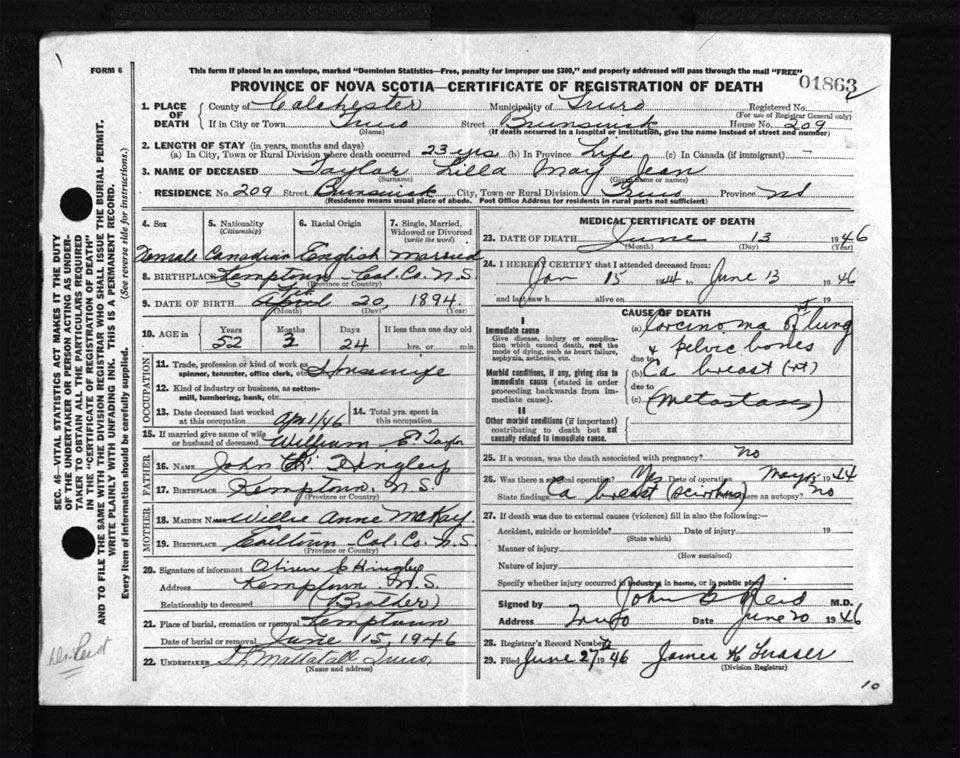 FORM 6
This form if placed in an envelope, marked "Dominion Statistics—Free, penalty for improper use $300," and properly addressed will pass through the mail "FREE"
PROVINCE OF NOVA SCOTIA—CERTIFICATE OF REGISTRATION OF DEATH
01863
1. PLACE OF DEATH { County of Colchester Municipality of Truro Registered No.
(For use of Registrar General only)
If in City or Town Truro Street Brunswick House No. 209
(Name) (If death occurred in a hospital or institution, give the name instead of street and number)
2. LENGTH OF STAY (in years, months and days)
(a) In City, Town or Rural Division where death occurred 23 yrs (b) In Province Life (c) In Canada (if immigrant)
3. NAME OF DECEASED Taylor Lilla May Jean
(Surname) (Given name or names)
RESIDENCE No. 209 Street Brunswick City, Town or Rural Division Truro Province NS
(Residence means usual place of abode. Post Office Address for residents in rural parts not sufficient)
4. Sex 5. Nationality (Citizenship) 6. Racial Origin 7. Single, Married, Widowed or Divorced (write the word)
Female Canadian English Married
8. BIRTHPLACE Kemptown Col. Co. N.S.
(Province or Country)
9. DATE OF BIRTH April 20, 1894
(Month) (Day) (Year)
10. AGE in Years Months Days If less than one day old
52 24 hrs. or min.
OCCUPATION
11. Trade, profession or kind of work as spinner, teamster, office clerk, etc. Housewife
12. Kind of industry or business, as cotten-mill, lumbering, bank, etc.
13. Date deceased last worked at this occupation Apr 1/46 14. Total yrs. spent in this occupation
15. If married give name of wife or husband of deceased William E. Taylor
FATHER
16. NAME John Hingley
17. BIRTHPLACE Kemptown, N.S.
(Province or Country)
MOTHER
18. MAIDEN NAME Willie Anne McKay
19. BIRTHPLACE Earltown Col. Co. N.S.
(Province or Country)
20. Signature of informant Hingley
Address Kemptown N.S
Relationship to deceased (Brother)
21. Place of burial, cremation or removal Kemptown
Date of burial or removal June 15, 1946
22. UNDERTAKER Mattatall Truro
(Name and address)
MEDICAL CERTIFICATE OF DEATH
23. DATE OF DEATH June 13 1946
(Month) (Day)
24. I HEREBY CERTIFY that I attended deceased from:
Jan 15 1944 to June 13 1946
and last saw h alive on 19
CAUSE OF DEATH
I
Immediate cause
Give disease, injury or complication which caused death, not the mode of dying, such as heart failure, asphyxia, asthenia, etc.
(a) Carcinoma of lung
& pelvic bones
due to
Morbid conditions, if any, giving rise to immediate cause (stated in order proceeding backwards from immediate cause).
(b) Ca breast (rt)
due to
(c) (metastases)
II
Other morbid conditions (if important) contributing to death but not causally related to immediate cause.
25. If a woman, was the death associated with pregnancy? No
26. Was there a surgical operation? Yes Date of operation May 15 1944
State findings Ca breast (scirrhus) Was there an autopsy? No
27. If death was due to external causes (violence) fill in also the following:—
Accident, suicide or homicide? Date of injury 19
(State which)
Manner of injury
(How sustained)
Nature of injury
Specify whether injury occurred in industry, in home, or in public place
Signed by John Reid M.D.
Address Truro Date June 20 1946
28. Registrar's Record Number
29. Filed June 27 1946 James K Fraser
(Division Registrar)
10
SEC. 46—VITAL STATISTICS ACT MAKES IT THE DUTY OF THE UNDERTAKER OR PERSON ACTING AS UNDERTAKER TO OBTAIN ALL THE PARTICULARS REQUIRED IN THE "CERTIFICATE OF REGISTRATION OF DEATH"
AND TO FILE THE SAME WITH THE DIVISION REGISTRAR WHO SHALL ISSUE THE BURIAL PERMIT.
WRITE PLAINLY WITH UNFADING INK. THIS IS A PERMANENT RECORD.
Every item of information should be carefully supplied. (See reverse side for instructions.)
Dr. Reid